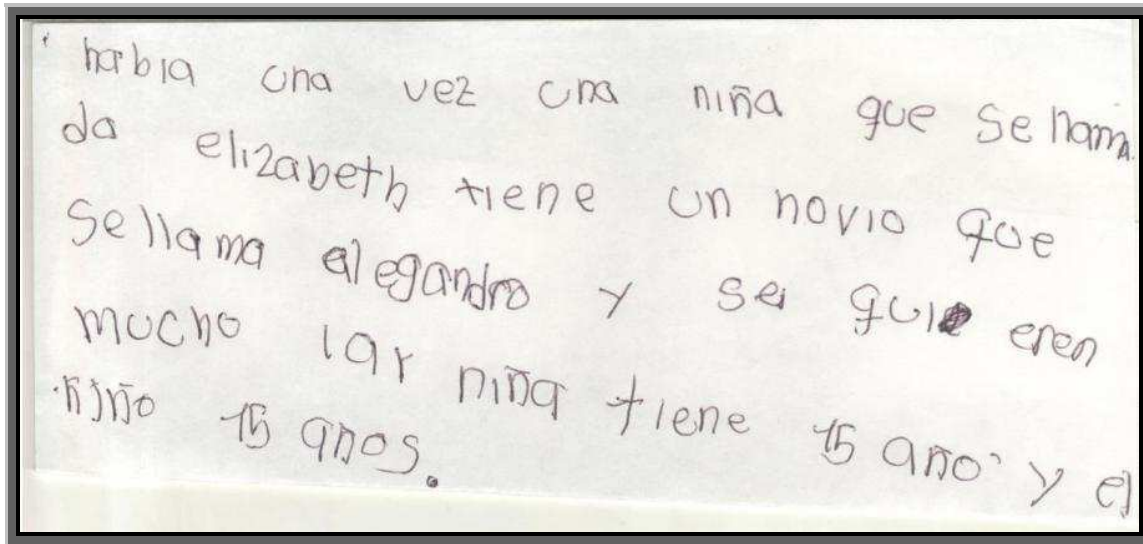 habia una vez una niña que se llam
da elizabeth tiene un novio que
se llama alegandro y se quieren
mucho lar niña tiene 15 año y el
niño 15 años.